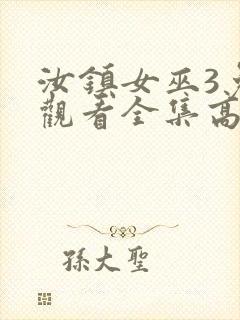 汝鎮女巫3
觀看全集高
孫大聖